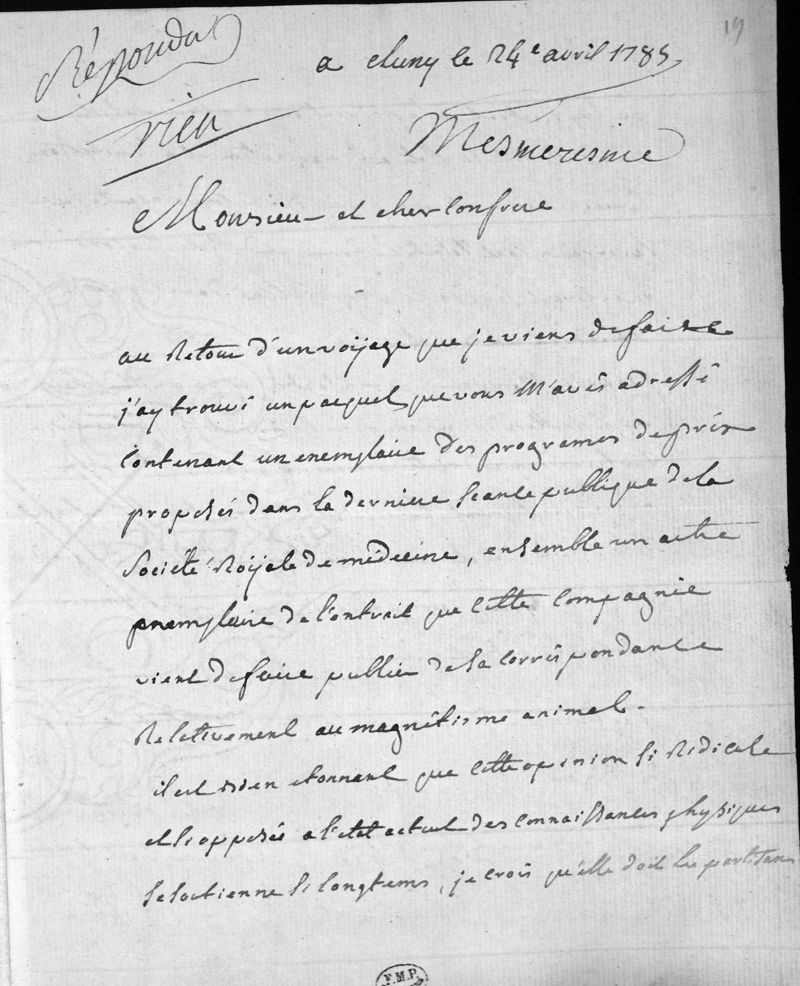 19
Répondu
rien
a cluny le 24e avril 1785
Mesmeresme
Monsieur et cher confrere
au Retour d'un voÿage que je viens de faire
j'ay trouvé un paquet que vous M'avés adressé
contenant un exemplaire des programes de prix
proposés dans la derniere séance publique de la
Société Roÿale de médecine, ensemble un autre
exemplaire de l'extrait que cette compagnie
vient de faire publier de sa corréspondance
Relativement au magnétisme animal.
il est bien etonnant que cette opinion si Ridicule
et si opposée a l'état actuel des connaissances physiques
se soutienne si longtems, je crois qu'elle doit ses partisans
F.M.P.